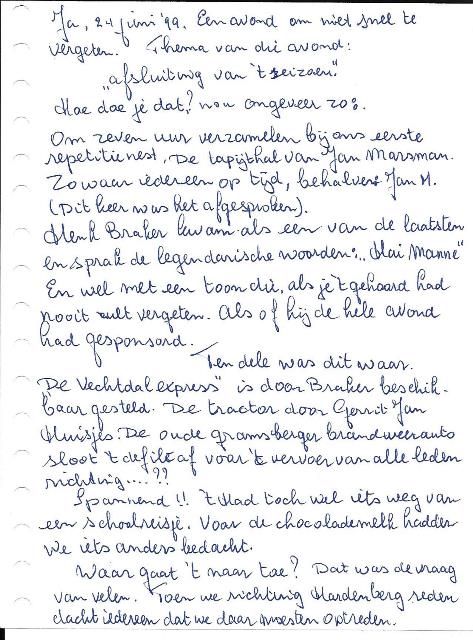 Ja, 24 juni '99. Een avond om niet snel te
vergeten. Thema van die avond:
"afsluiting van 't seizoen".
Hoe doe je dat? nou ongeveer zo:
Om zeven uur verzamelen bij ons eerste
repetitienest, De tapijthal van Jan Marsman.
Zowaar iedereen op tijd, behalve Jan M.
(Dit keer was het afgesproken).
Henk Braker kwam als een van de laatsten
en sprak de legendarische woorden: "Hai Manne"
En wel met een toon die, als je 't gehoord had
nooit zult vergeten. Als of hij de hele avond
had gesponsord.
Ten dele was dit waar.
De Vechtdalexpress" is door Braker beschik-
baar gesteld. De tractor door Gerrit Jan
Huisjes. De oude gramsberger brandweerauto
sloot 't defilé af voor 't vervoer van alle leden
richting....??
Spannend!! 't Had toch wel iets weg van
een schoolreisje. Voor de chocolademelk hadden
we iets anders bedacht.
Waar gaat 't naar toe? Dat was de vraag
van velen. Toen we richting Hardenberg reden
dacht iedereen dat we daar moesten optreden.